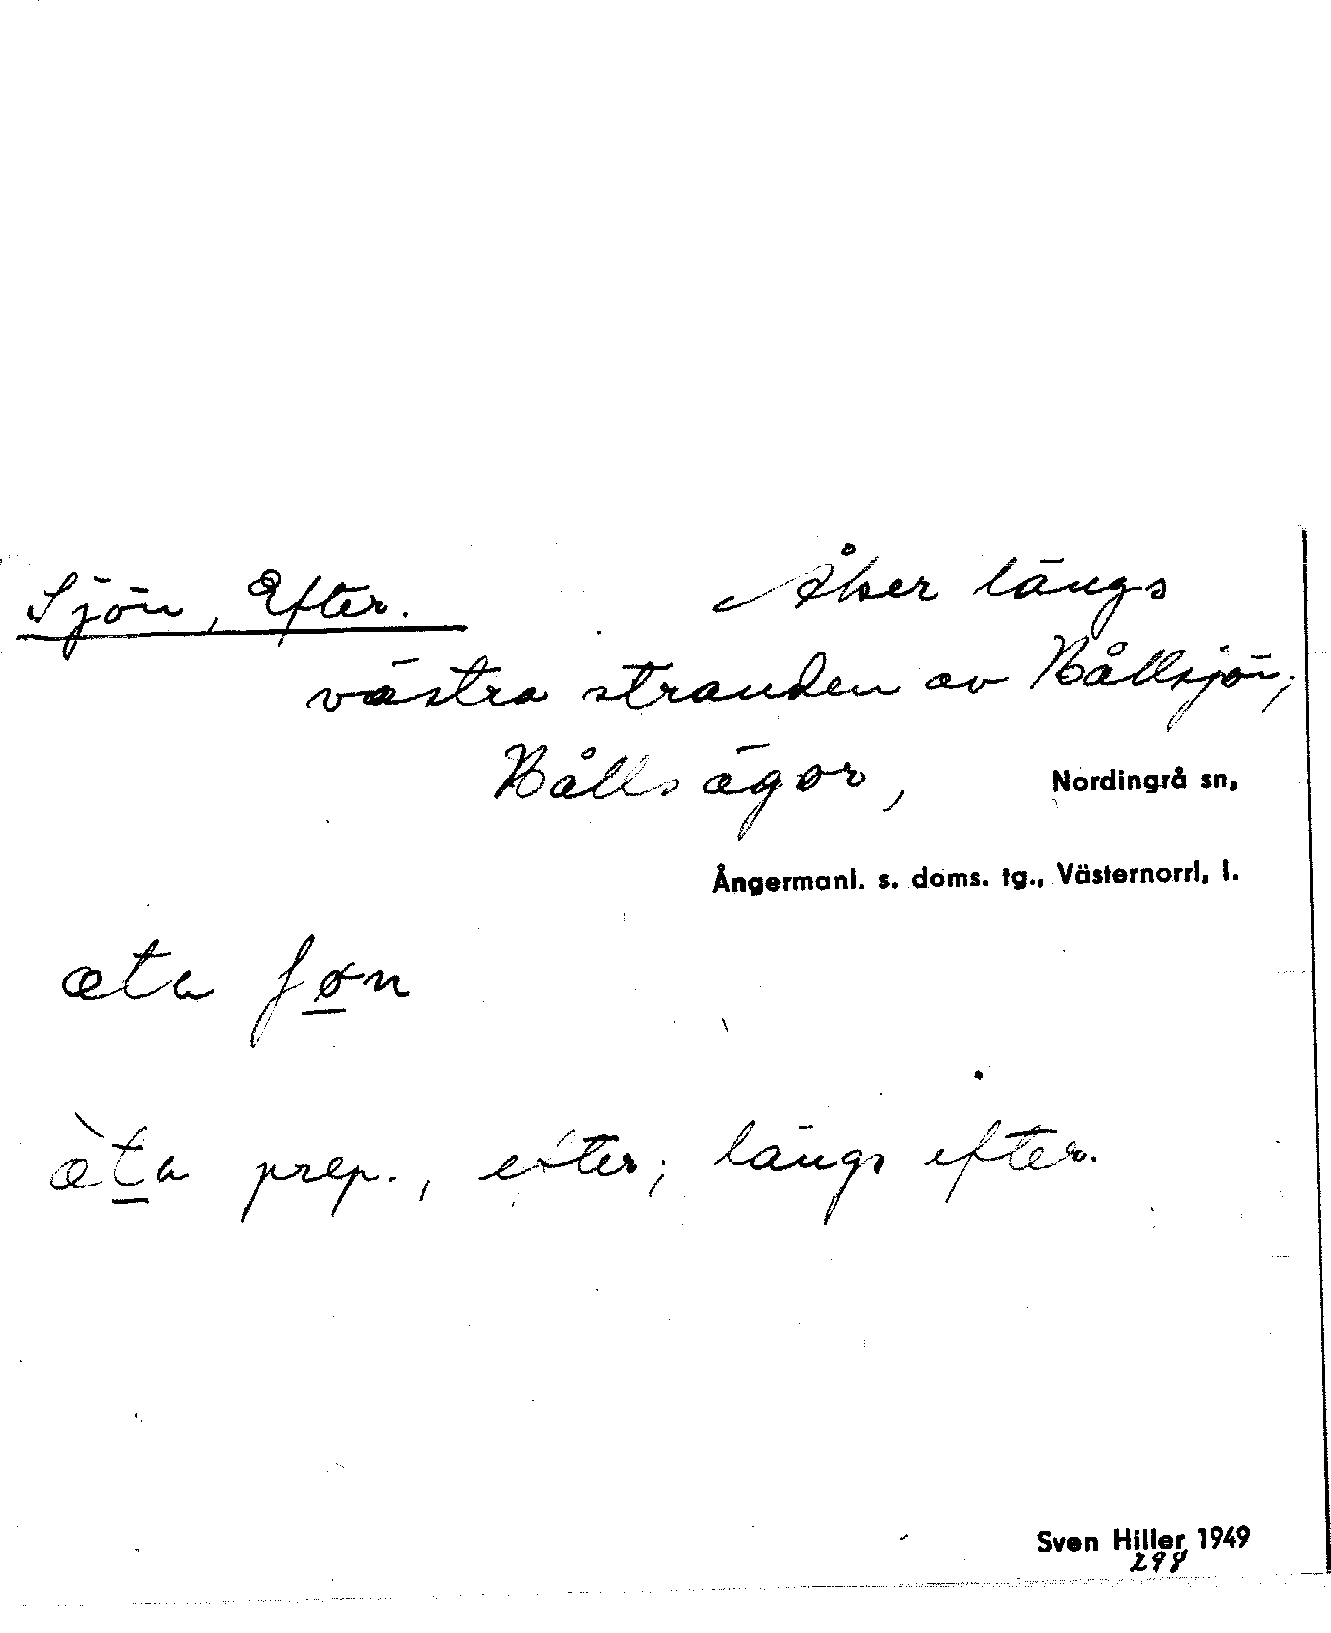 Sjön, Efter. Åker längs
västra stranden av Bållsjön;
Bålls ägor, Nordingrå sn,
Ångermanl. s. doms. tg., Västernorrl. l.
æta ʃøn
æ̀ta prep., efter; längs efter.
Sven Hiller 1949
298